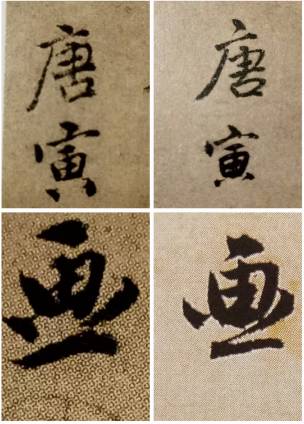 唐寅
唐寅
画
画